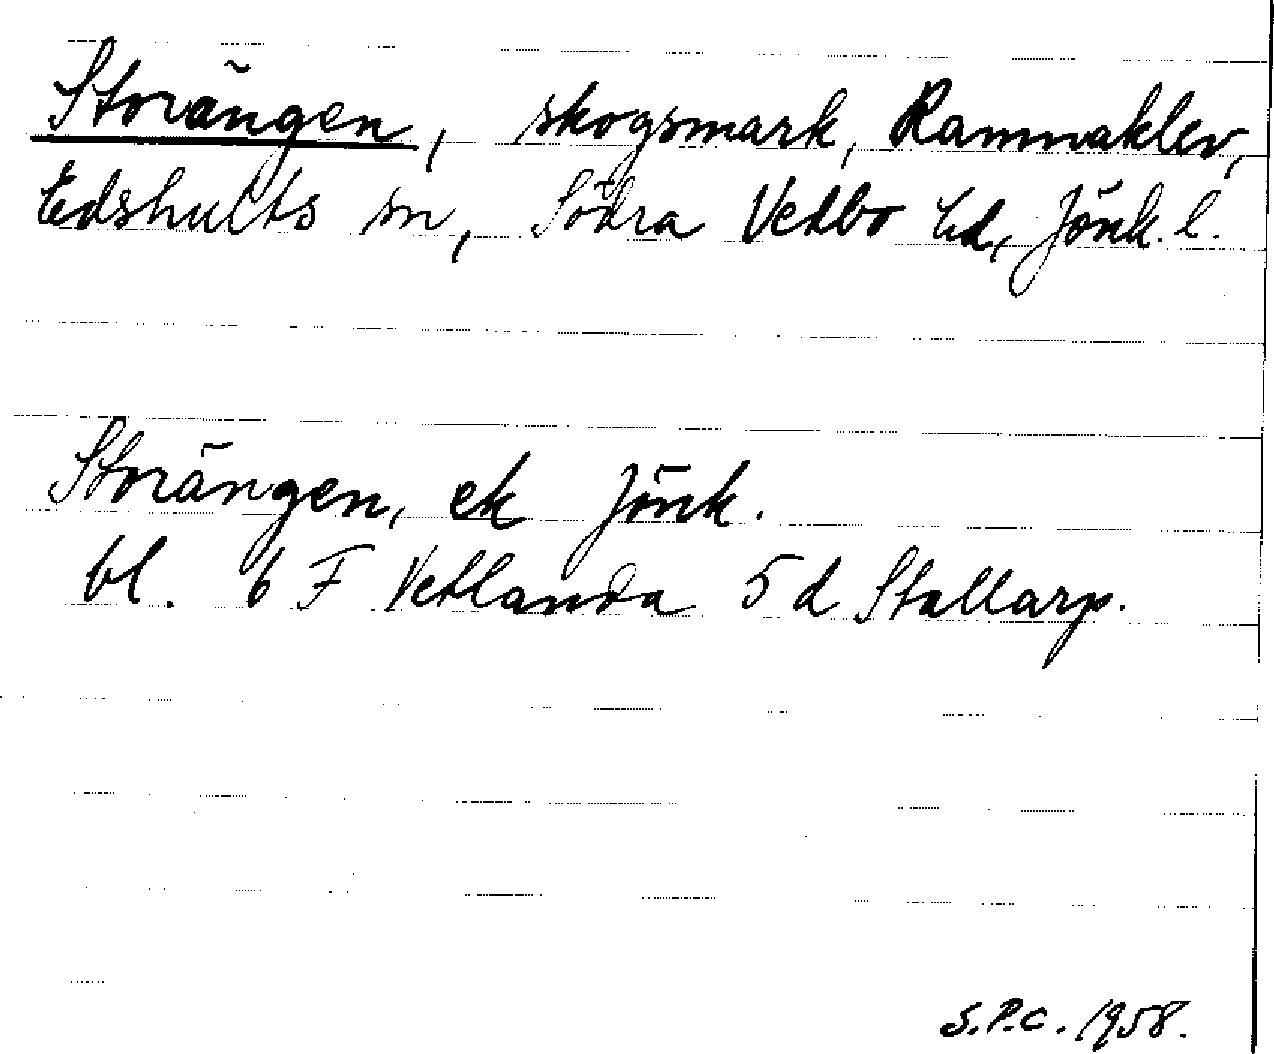 Storängen, skogsmark, Ramnaklev,
Edshults sn, Södra Vedbo hd, Jönk. l.
Storängen, ek Jönk.
bl. 6 F Vetlanda 5 d Stallarp.
S.P.C. 1958.